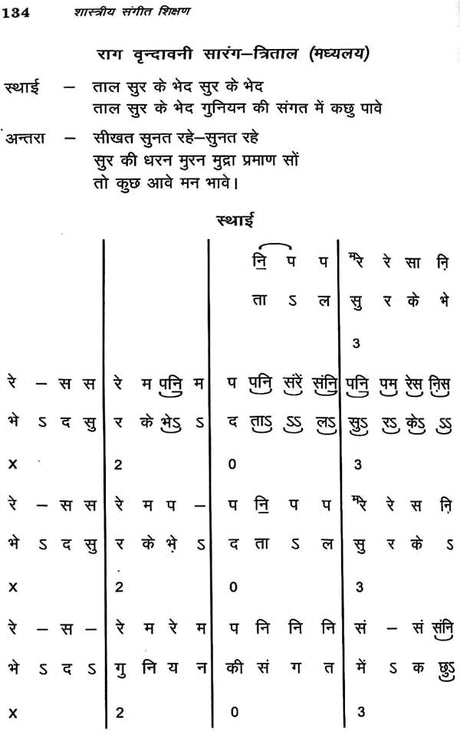 134 शास्त्रीय संगीत शिक्षण
राग वृन्दावनी सारंग–त्रिताल (मध्यलय)
स्थाई – ताल सुर के भेद सुर के भेद
ताल सुर के भेद गुनियन की संगत में कछु पावे
अन्तरा – सीखत सुनत रहे–सुनत रहे
सुर की धरन मुरन मुद्रा प्रमाण सों
तो कुछ आवे मन भावे।
स्थाई
नि॒ प प मरे रे सा नि़
ता ऽ ल सु र के भे
3
रे – स स रे म पनि॒ म प पनि॒ संरें संनि॒ पनि॒ पम रेस नि़स
भे ऽ द सु र के भेऽ ऽ द ताऽ ऽऽ लऽ सुऽ रऽ केऽ ऽऽ
x 2 0 3
रे – स स रे म प – प नि॒ प प मरे रे स नि़
भे ऽ द सु र के भे ऽ द ता ऽ ल सु र के ऽ
x 2 0 3
रे – स – रे म रे म प नि नि नि सं – सं संनि॒
भे ऽ द ऽ गु नि य न की सं ग त में ऽ क छुऽ
x 2 0 3